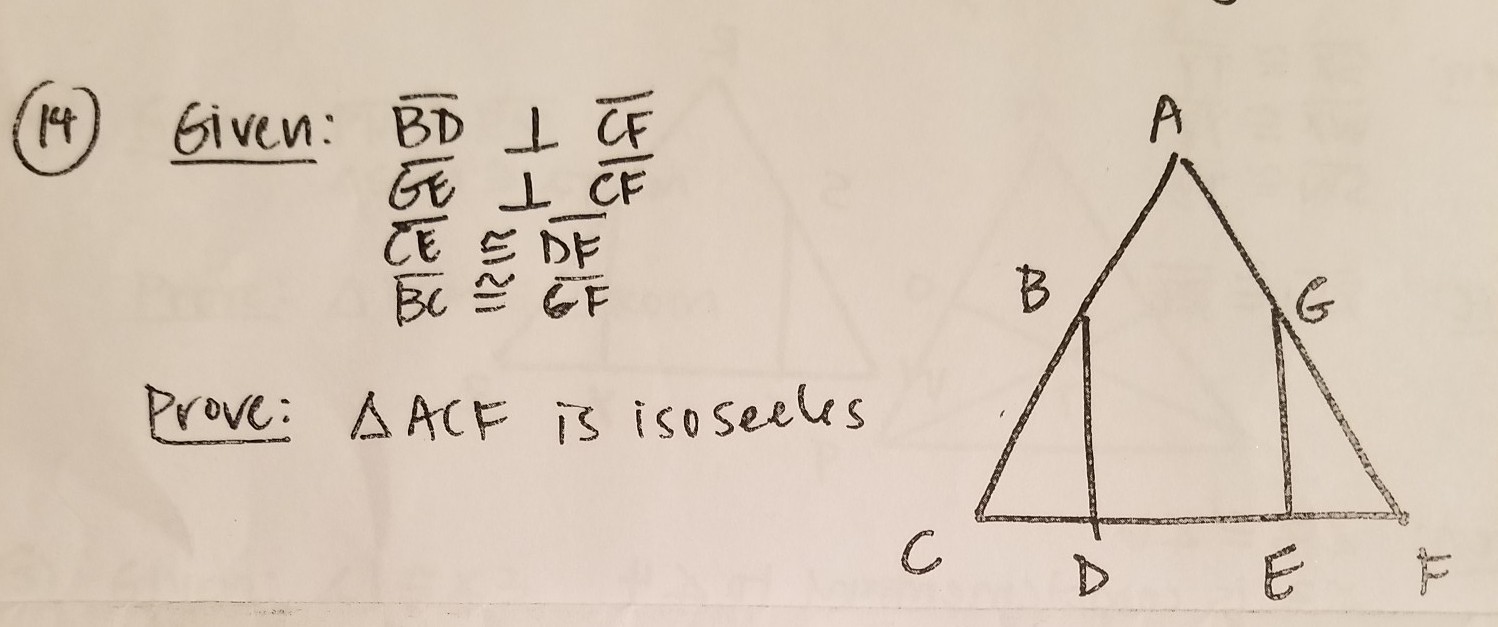 14 Given: BD ⊥ CF
GE ⊥ CF
CE ≅ DF
BC ≅ GF
Prove: △ACF is isosceles
A
B
G
C
D
E
F